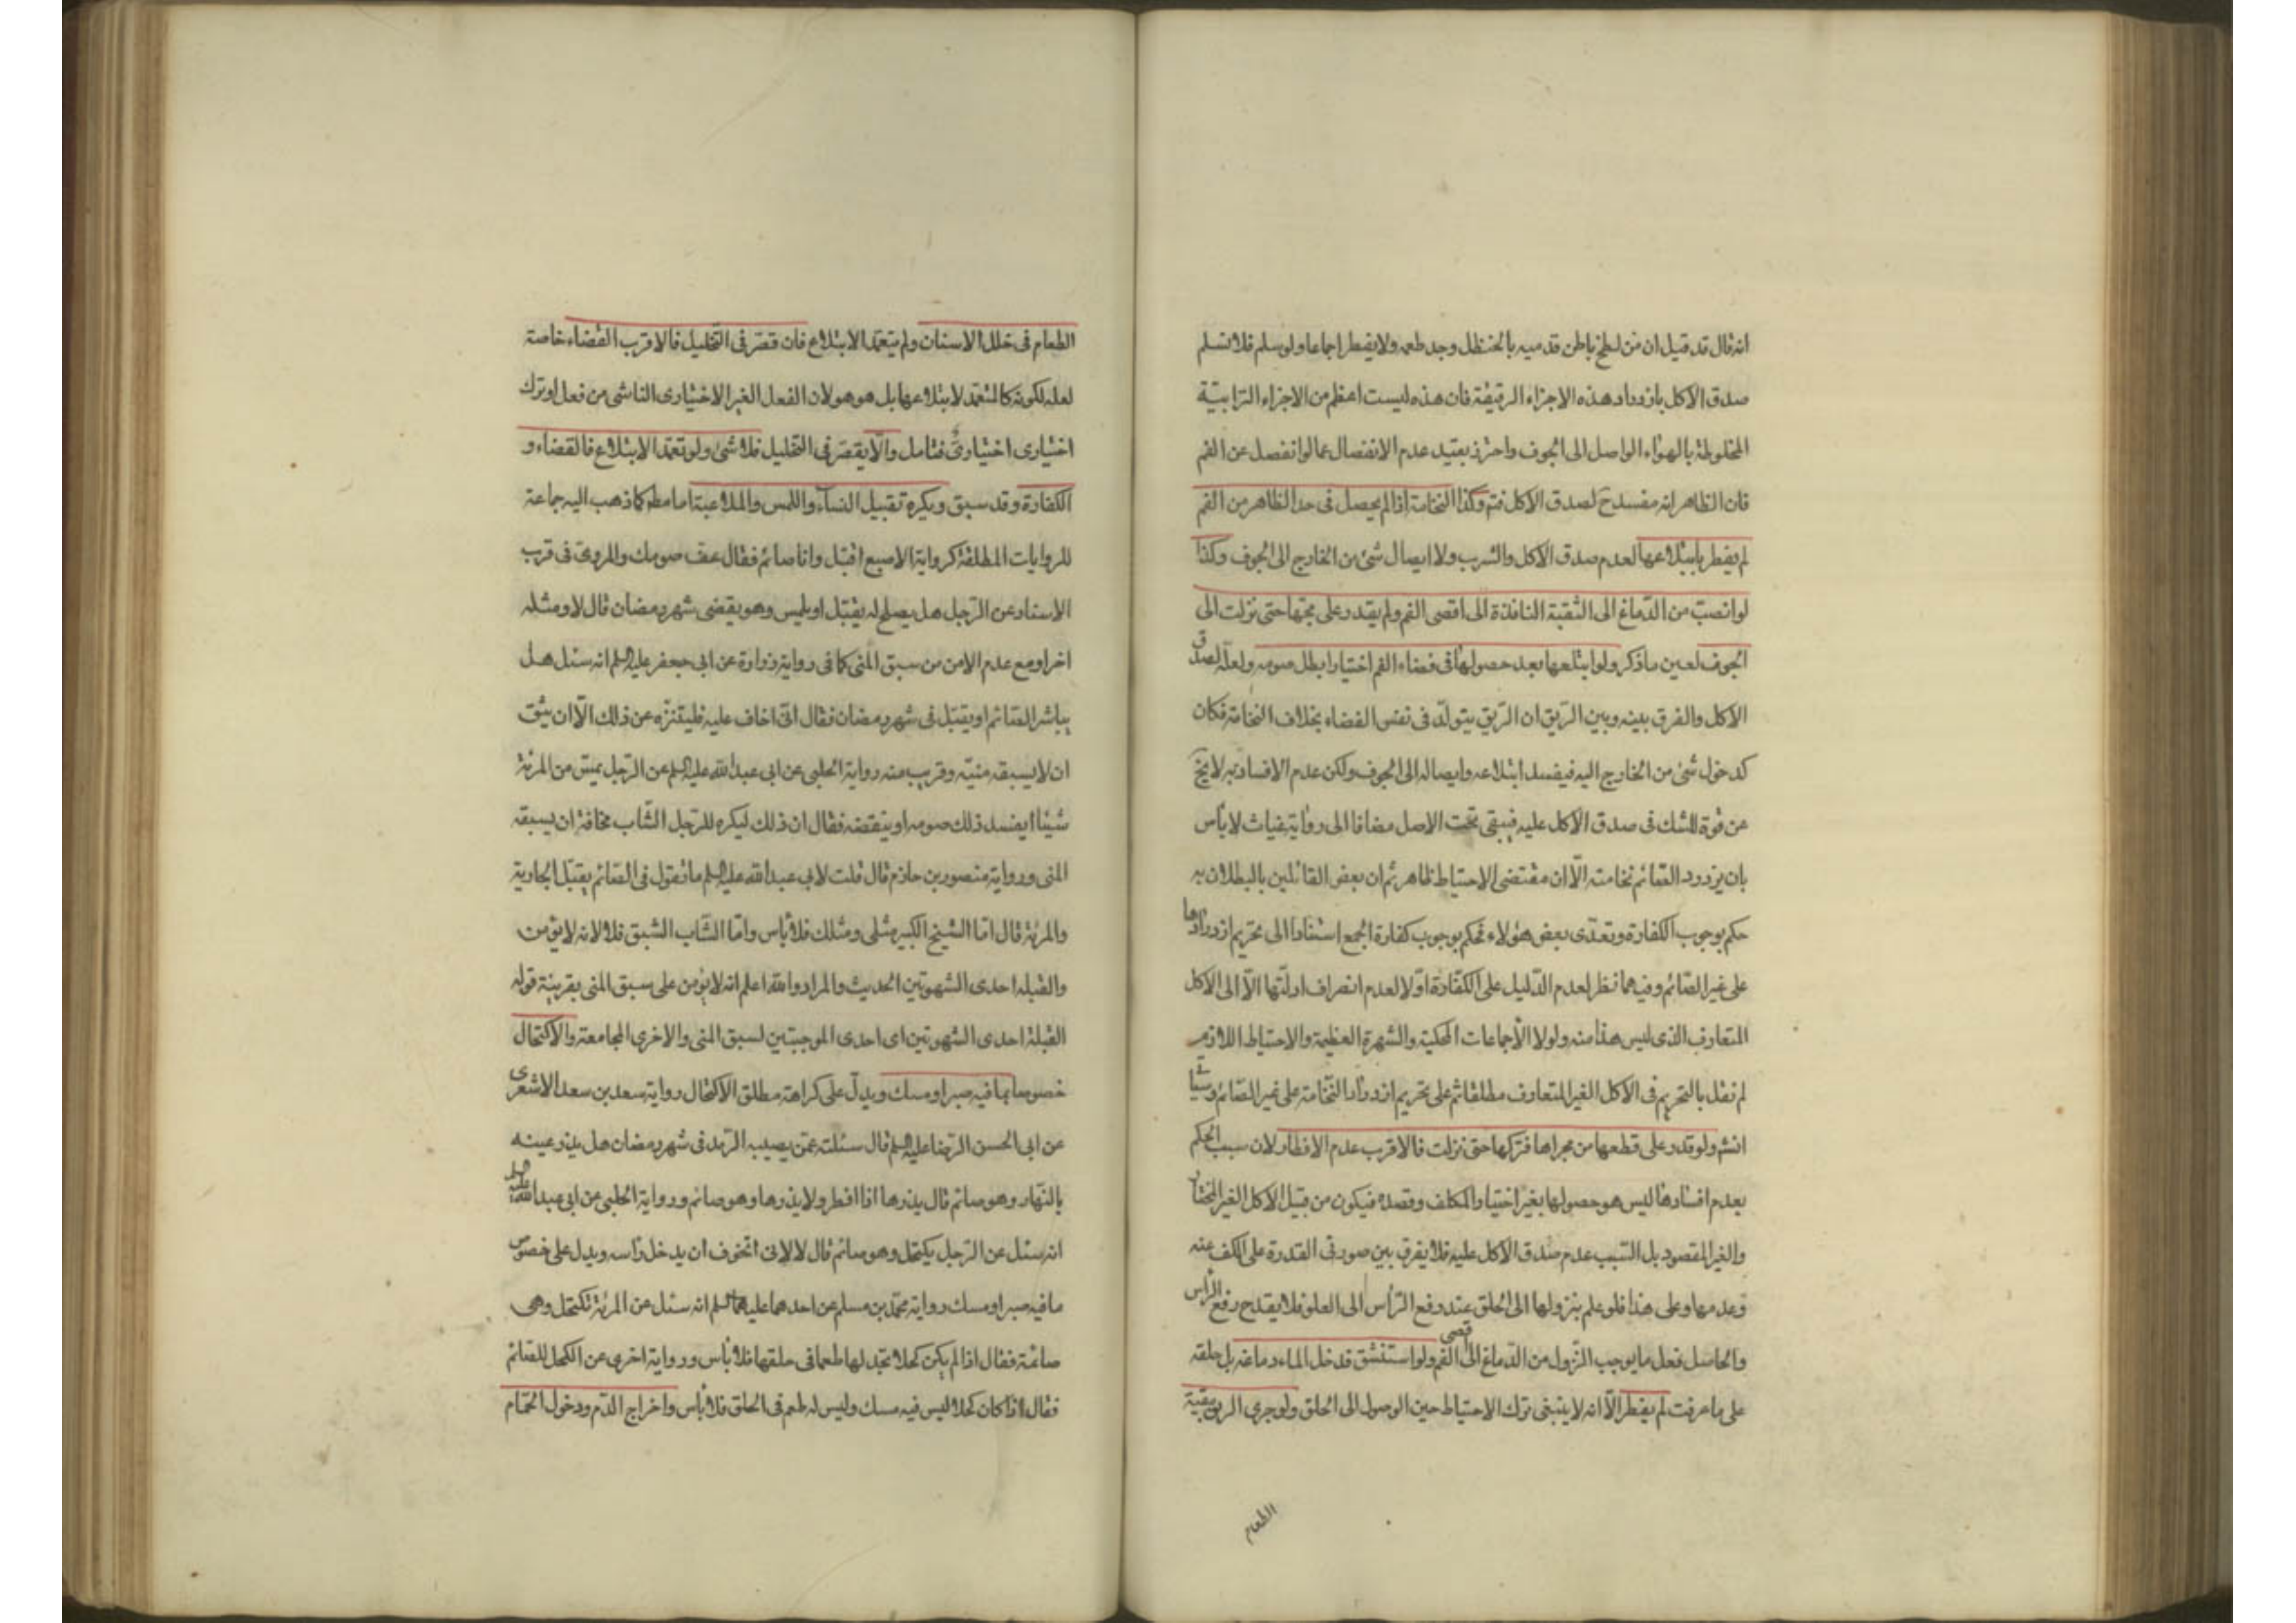 انه قال قد قيل ان من لطخ باطن قدميه بالحنظل وجد طعمه ولا يفطر اجماعا ولو سلم فلا نسلم
صدق الاكل بازدراد هذه الاجزاء الرقيقة فان هذه ليست اعظم من الاجزاء الترابيّة
المخلوطة بالهواء الواصل الى الجوف واحترز بقيد عدم الانفصال عما لو انفصل عن الفم
فان الظاهر انه مفسد ح لصدق الاكل فتم وكذا النخامة اذا لم يحصل فى حد الظاهر من الفم
لم يفطر بابتلاعها لعدم صدق الاكل والشرب ولا ايصال شئ من الخارج الى الجوف وكذا
لو انصبّ من الدّماغ الى الثقبة النافذة الى اقصى الفم ولم يقدر على مجّها حتى نزلت الى
الجوف لعين ما ذكر ولو ابتلعها بعد حصولها فى فضاء الفم اختيارا بطل صومه ولعلّه لصدق
الاكل والفرق بينه وبين الرّيق ان الرّيق يتولّد فى نفس الفضاء بخلاف النخامة فكان
كدخول شئ من الخارج اليه فيفسد ابتلاعه وايصاله الى الجوف ولكن عدم الافساد به لا يخ
عن قوة للشك فى صدق الاكل عليه فيبقى تحت الاصل مضافا الى رواية غياث لا بأس
بان يزدرد الصّائم نخامته الّا ان مقتضى الاحتياط ظاهر ثم ان بعض القائلين بالبطلان به
حكم بوجوب الكفارة وتعدّى بعض هؤلاء فحكم بوجوب كفارة الجمع استنادا الى تحريم ازدرادها
على غير الصّائم وفيهما نظر لعدم الدّليل على الكفّارة اوّلا لعدم انصراف ادلّتها الّا الى الاكل
المتعارف الذى ليس هذا منه ولولا الاجماعات المحكية والشهرة العظيمة والاحتياط اللازم
لم نقل بالتحريم فى الاكل الغير المتعارف مطلقا ثم على تحريم ازدراد النّخامة على غير الصّائم وثانيا
انتم ولو قدر على قطعها من مجراها فتركها حتى نزلت فالاقرب عدم الافطار لان سبب الحكم
بعدم افسادها ليس هو حصولها بغير اختيار المكلف وقصده فيكون من قبيل الاكل الغير المختار
والغير المقصود بل السّبب عدم صدق الاكل عليه فلا يفرق بين صورتى القدرة على الكف عنه
وعدمها وعلى هذا فلو علم بنزولها الى الحلق عند رفع الرّأس الى العلو فلا يقدح رفع الرأس
والحاصل فعل ما يوجب النّزول من الدّماغ الى اقصى الفم ولو استنشق فدخل الماء دماغه بل حلقه
على ما عرفت لم يفطر الّا انه لا ينبغى ترك الاحتياط حين الوصول الى الحلق ولو جرى الريق ببقيّة
الطعام
الطعام فى خلل الاسنان ولم يتعمّد الابتلاع فان قصّر فى التّخليل فالاقرب القضاء خاصة
لعله لكونه كالمتعمّد لابتلاعها بل هو هو لان الفعل الغير الاختيارى الناشى من فعل او ترك
اختيارى اختيارىّ فتامل والّا يقصّر فى التخليل فلا شئ ولو تعمّد الابتلاع فالقضاء و
الكفارة وقد سبق ويكره تقبيل النساء واللمس والملاعبة اما مطم كما ذهب اليه جماعة
للروايات المطلقة كرواية الاصبع اقبّل وانا صائم فقال عف صومك والمروىّ فى قرب
الاسناد عن الرّجل هل يصلح له يقبّل او يلمس وهو يقضى شهر رمضان قال لا ومثله
اخر او مع عدم الامن من سبق المنى كما فى رواية زرارة عن ابى جعفر عليه السلم انه سئل هل
يباشر الصّائم او يقبّل فى شهر رمضان فقال انّى اخاف عليه فليتنزّه عن ذلك الّا ان يثق
ان لا يسبقه منيّه وقريب منه رواية الحلبى عن ابى عبد الله عليه السلم عن الرّجل يمسّ من المرئة
شيئا ايفسد ذلك صومه او ينقضه فقال ان ذلك ليكره للرّجل الشّاب مخافة ان يسبقه
المنى ورواية منصور بن حازم قال قلت لابى عبد الله عليه السلم ما تقول فى الصّائم يقبّل الجارية
والمرئة قال امّا الشيخ الكبير مثلى ومثلك فلا بأس وامّا الشّاب الشبق فلا لانه لا يؤمن
والقبله احدى الشهوتين الحديث والمراد والله اعلم انه لا يؤمن على سبق المنى بقرينة قوله
القبلة احدى الشهوتين اى احدى الموجبتين لسبق المنى والاخرى المجامعة والاكتحال
خصوصا بما فيه صبر او مسك ويدلّ على كراهة مطلق الاكتحال رواية سعد بن سعد الاشعرى
عن ابى الحسن الرّضا عليه السلم قال سئلته عمّن يصيبه الرّمد فى شهر رمضان هل يذر عينه
بالنّهار وهو صائم قال يذرها اذا افطر ولا يذرها وهو صائم ورواية الحلبى عن ابى عبد الله عليه السلم
انه سئل عن الرّجل يكتحل وهو صائم قال لا لانى اتخوف ان يدخل رأسه ويدل على خصوص
ما فيه صبر او مسك رواية محمّد بن مسلم عن احدهما عليهما السلم انه سئل عن المرئة تكتحل وهى
صائمة فقال اذا لم يكن كحلا تجد لها طعما فى حلقها فلا بأس ورواية اخرى عن الكحل للصّائم
فقال اذا كان كحلا ليس فيه مسك وليس له طعم فى الحلق فلا بأس واخراج الدّم ودخول الحمّام